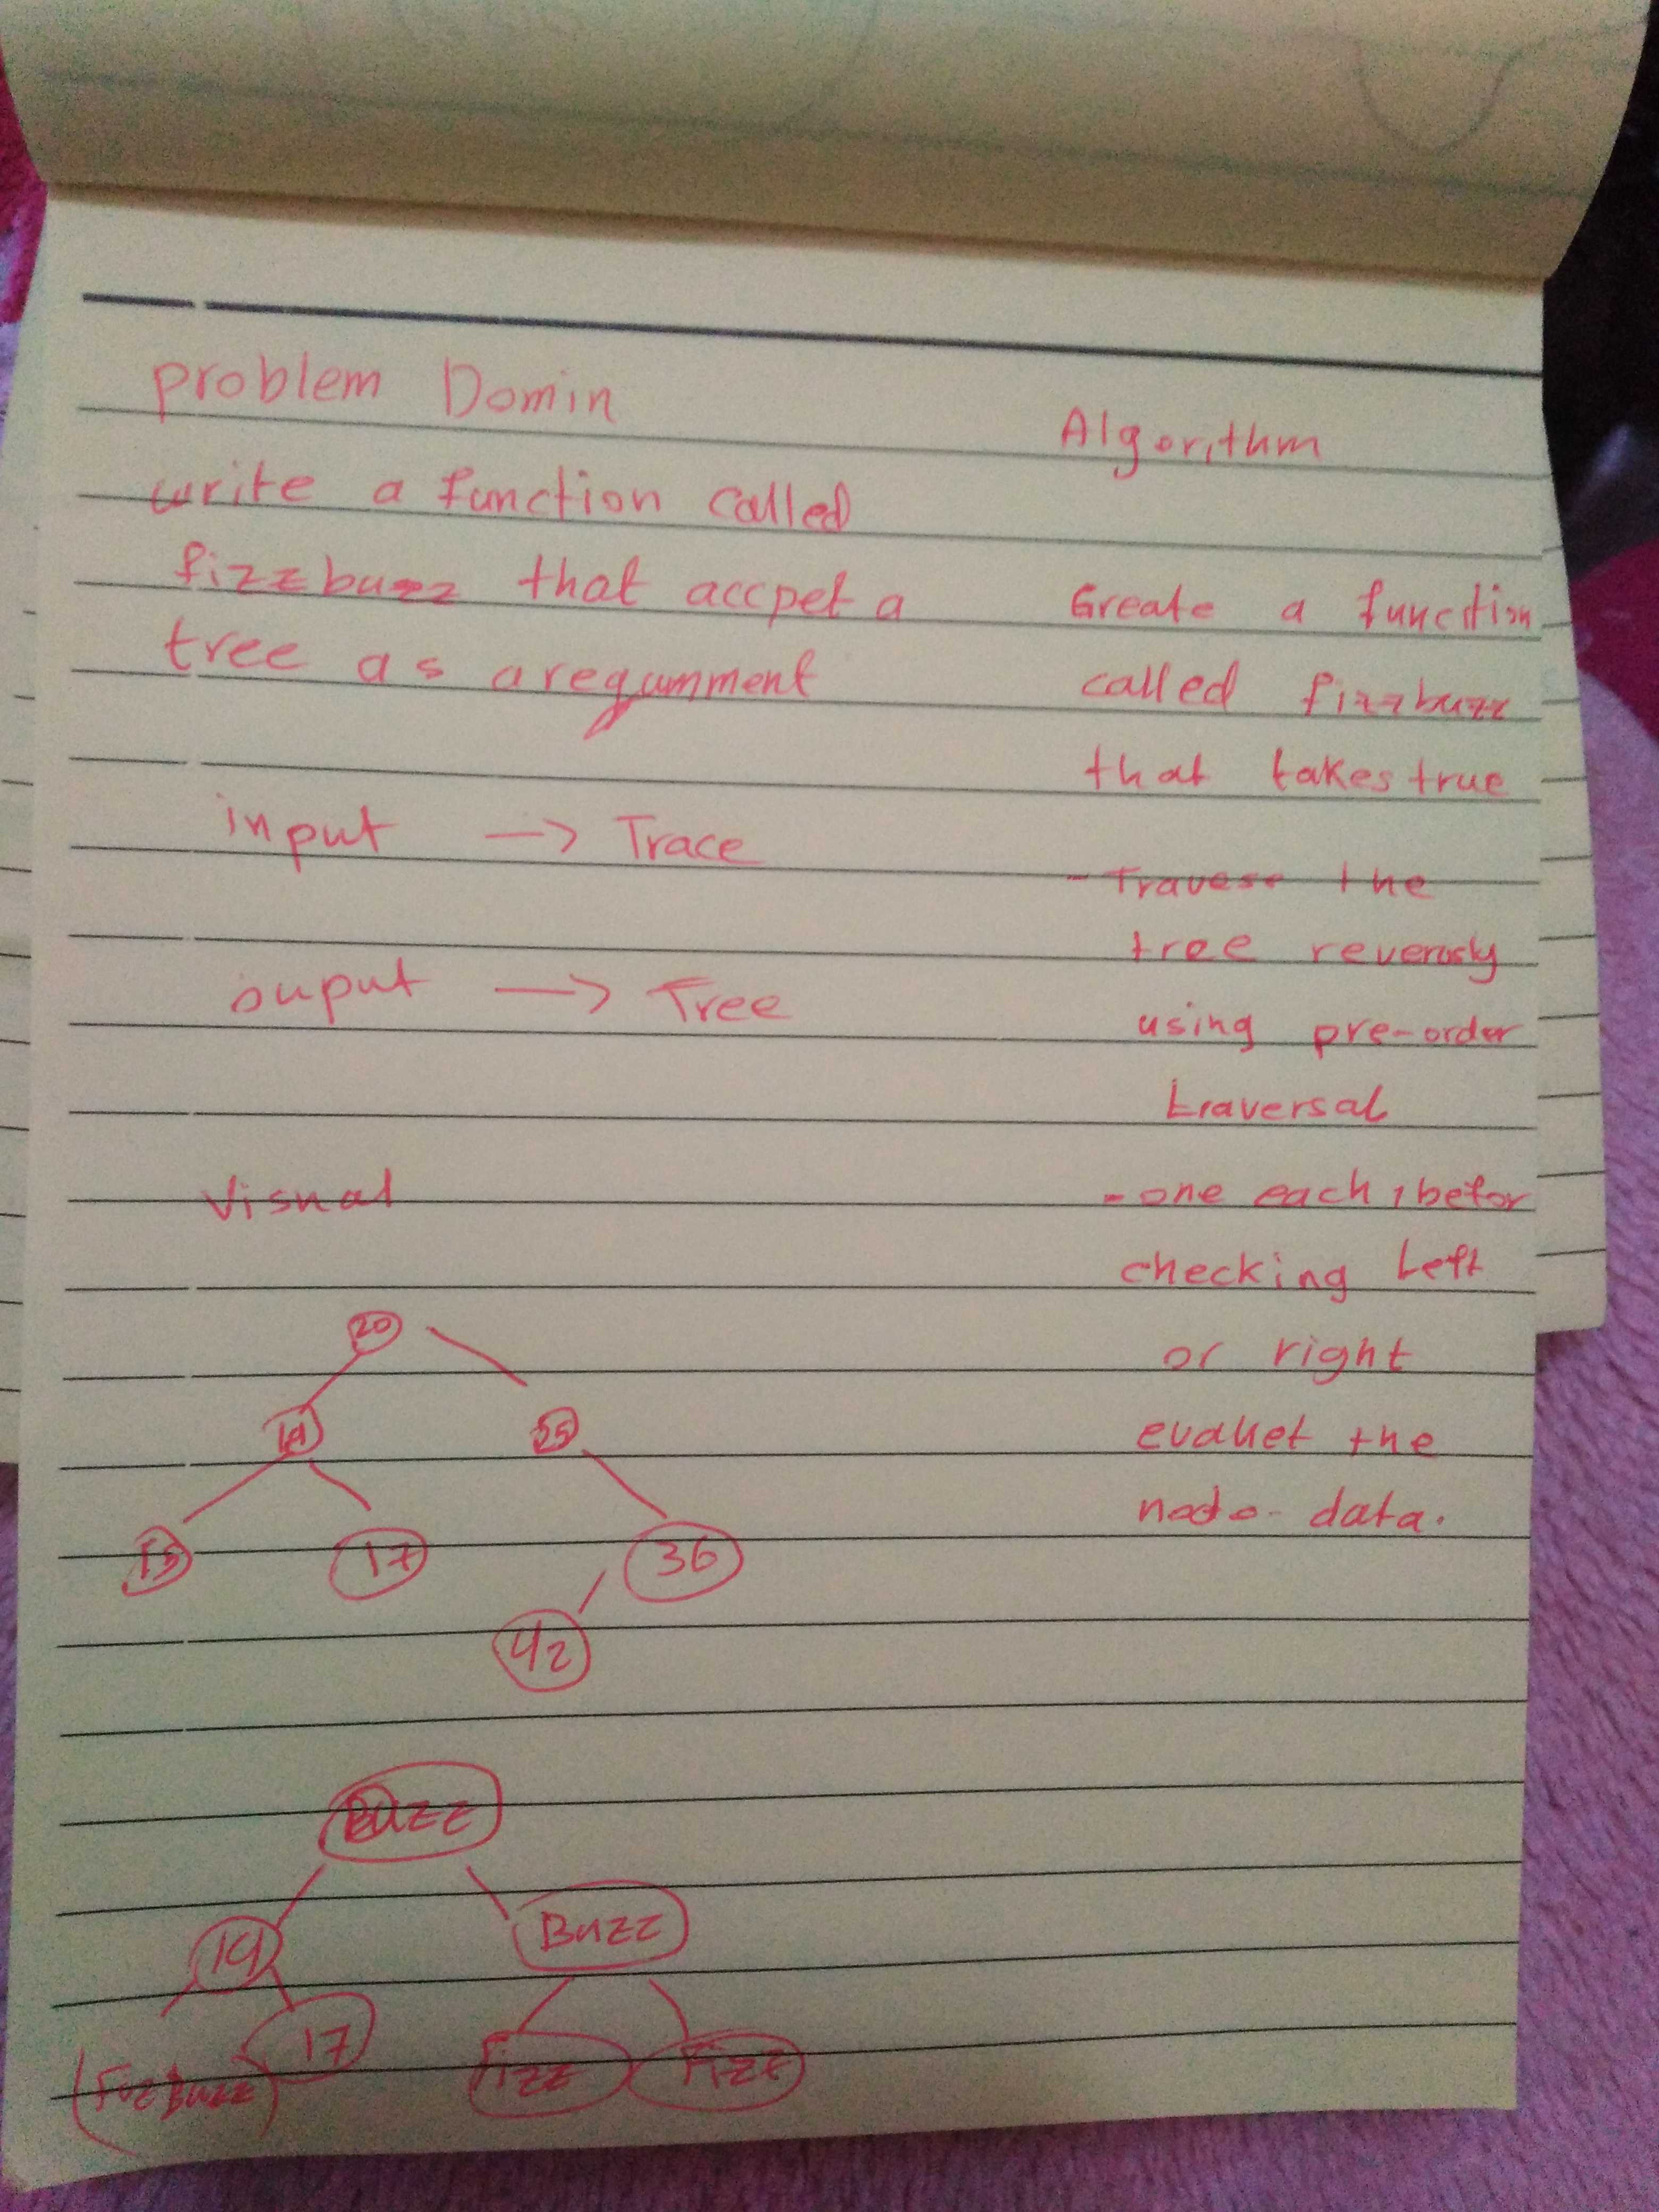 problem Domin
write a function called
fizzbuzz that accpet a
tree as aregumment
input -> Trace
ouput -> Tree
Visual
20
19 25
15 17 36
42
Buzz
19 Buzz
17
FizBuzz Fizz Fizz
Algorithm
Greate a function
called fizzbuzz
that takes true
- Travese the
tree reverosly
using pre-order
traversal
- one each, befor
checking Left
or right
evaluet the
node data.